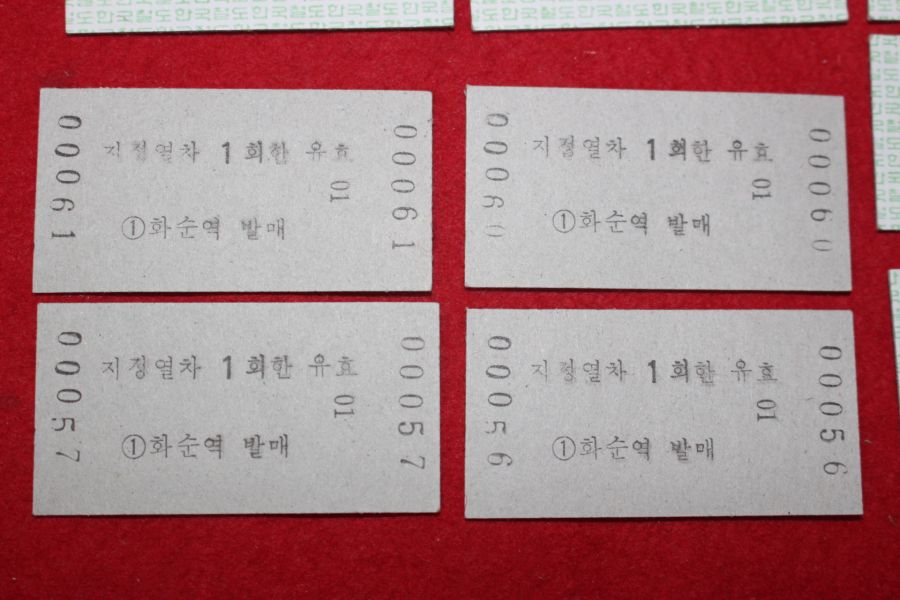 한국철도한국철도한국철도한국철도
한국철도한국철도한국철도한국철도
00061
지정열차 1회한 유효
01
①화순역 발매
00061
00060
지정열차 1회한 유효
01
①화순역 발매
00060
00057
지정열차 1회한 유효
01
①화순역 발매
00057
00056
지정열차 1회한 유효
01
①화순역 발매
00056